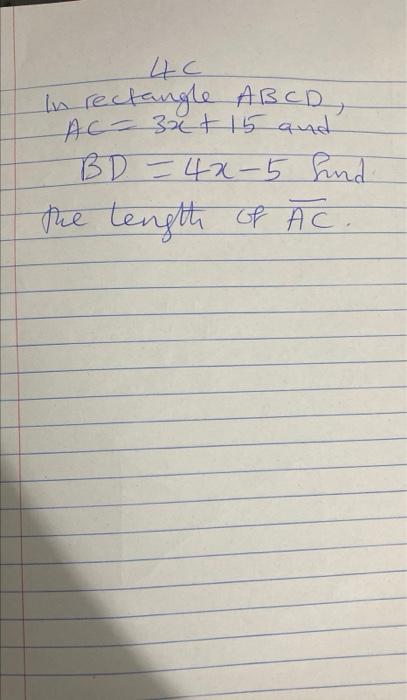 4C
In rectangle ABCD,
AC = 3x + 15 and
BD = 4x - 5 find
the length of A̅C̅.